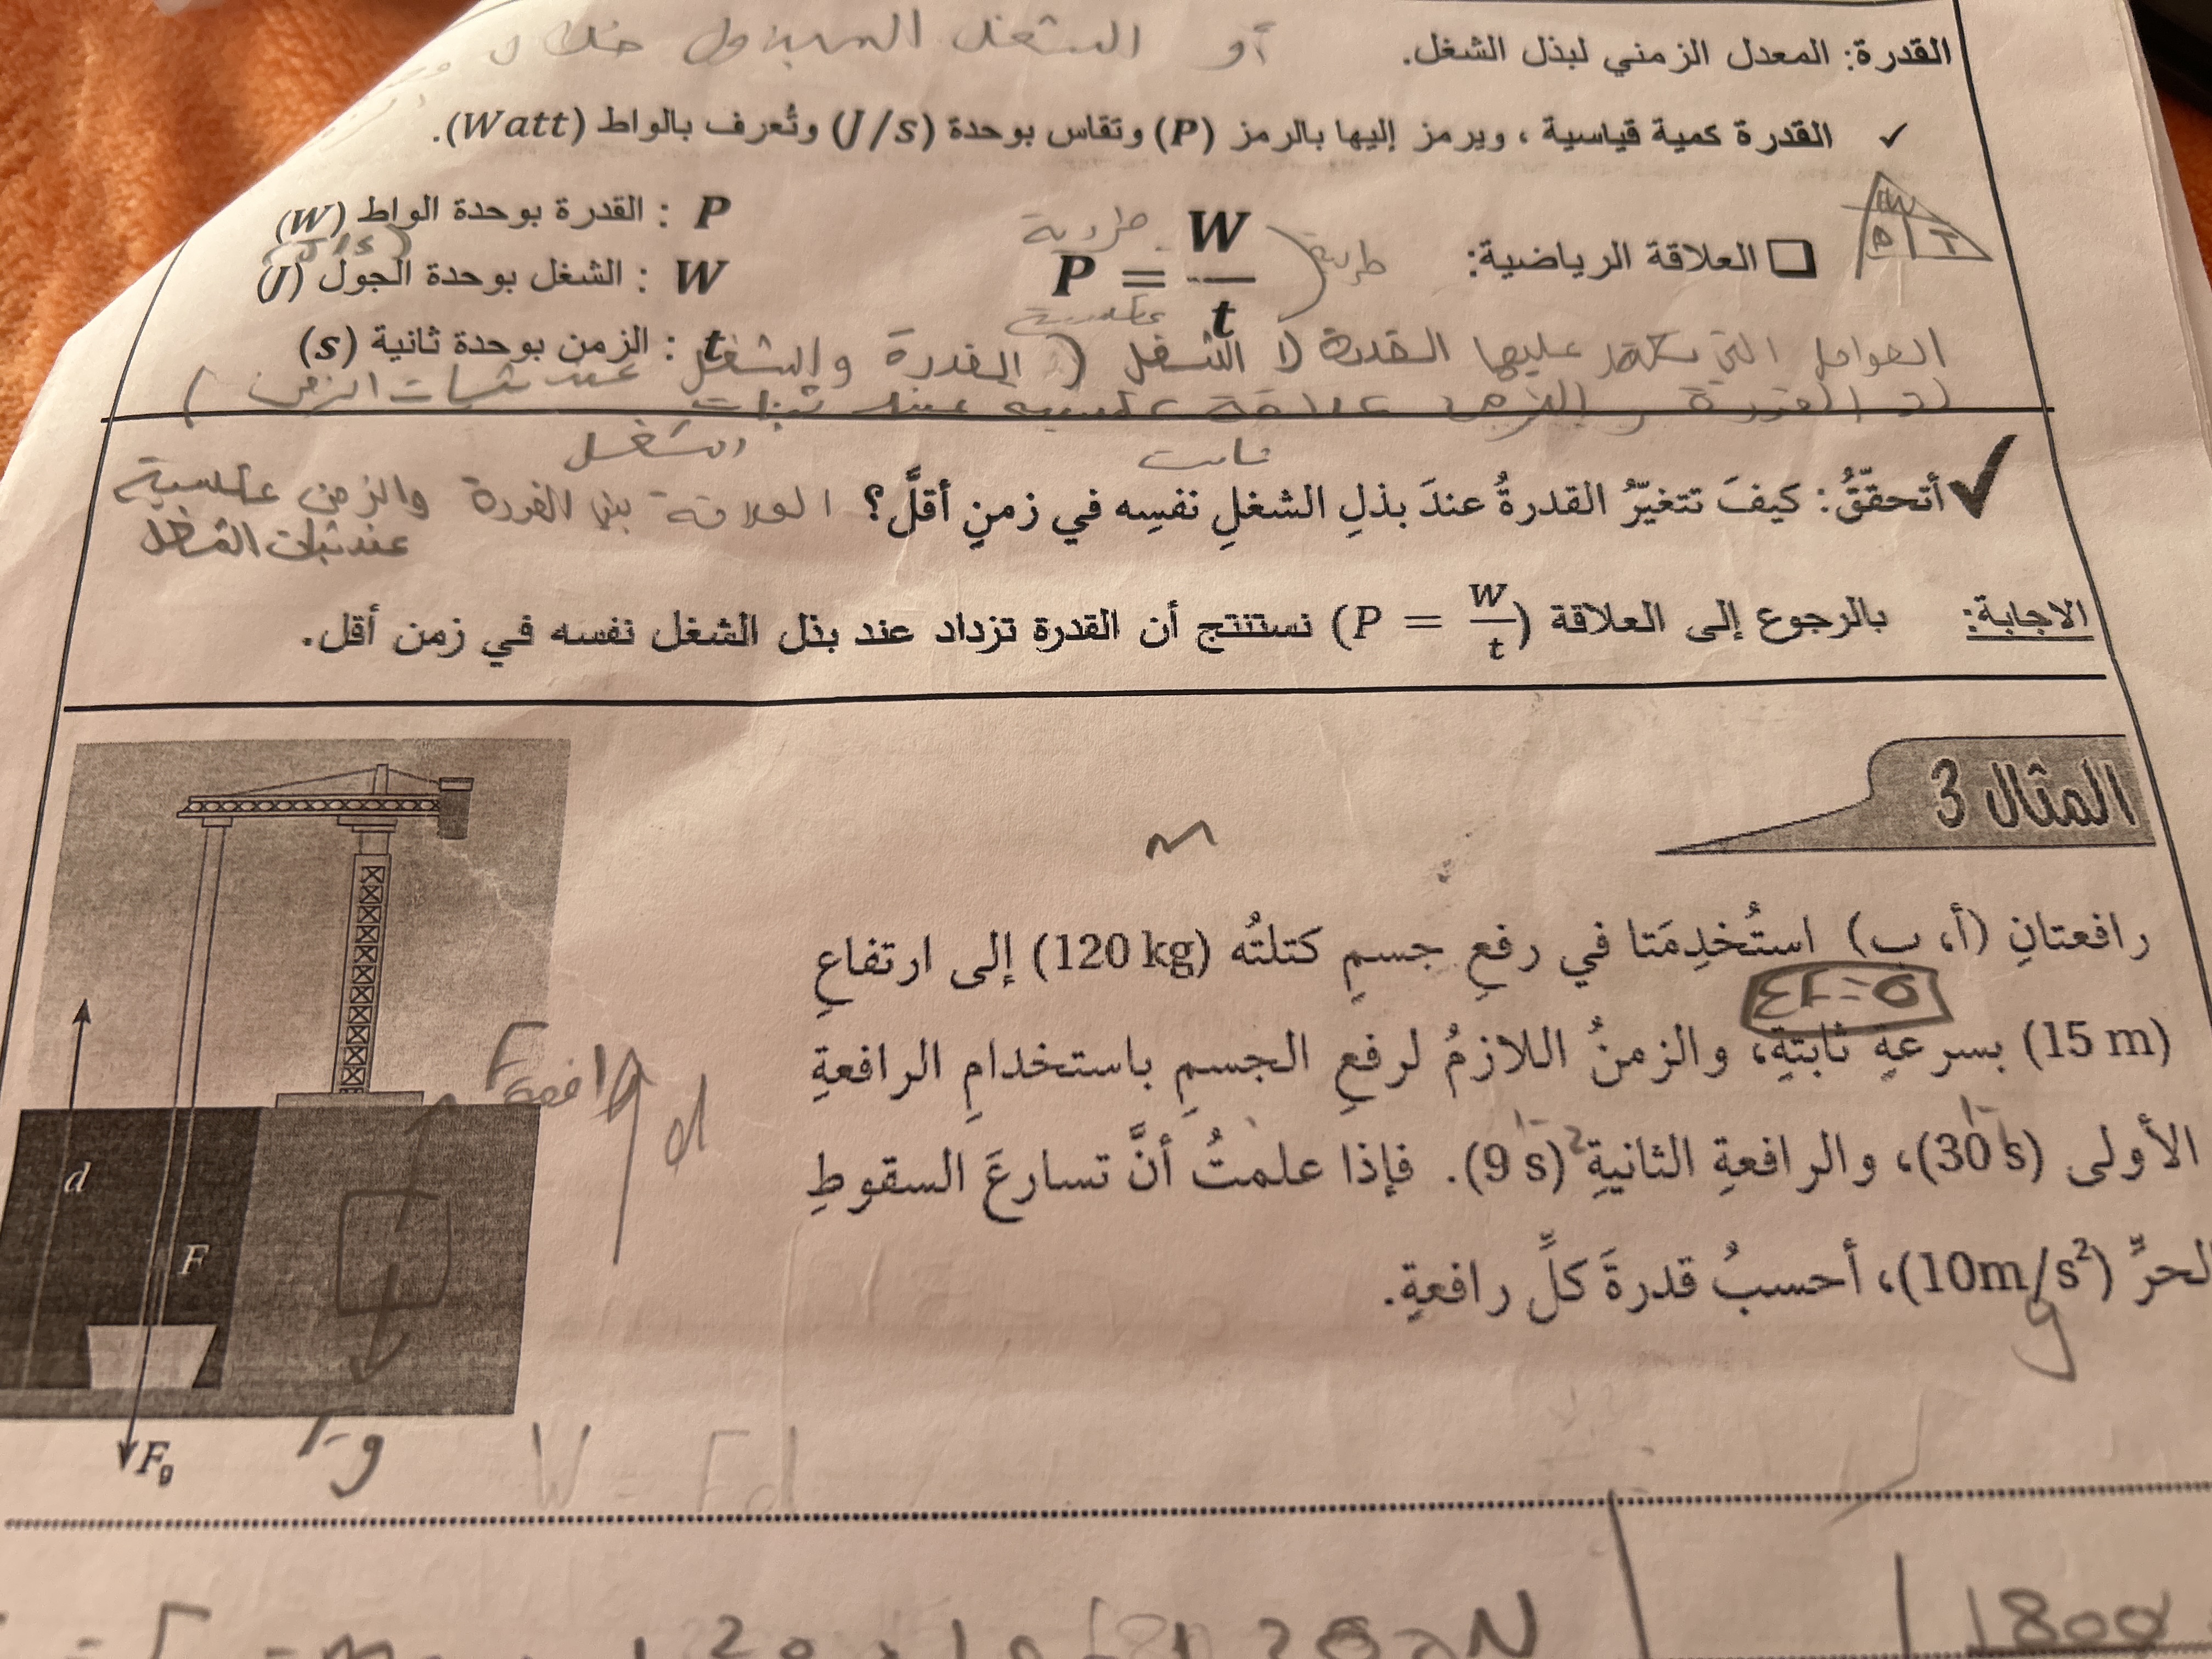 القدرة: المعدل الزمني لبذل الشغل. أو الشغل المبذول خلال
✓ القدرة كمية قياسية ، ويرمز إليها بالرمز (P) وتقاس بوحدة (J/s) وتُعرف بالواط (Watt).
W
P T
□ العلاقة الرياضية: P = W/t
طردية
طردية
عكسية
P : القدرة بوحدة الواط (W)
(J/s)
W : الشغل بوحدة الجول (J)
t : الزمن بوحدة ثانية (s)
العوامل التي عليها القدرة 1) الشغل (القدرة والشغل عند ثبات الزمن)
2) القدرة والزمن علاقة عكسية عند ثبات
الشغل
ثابت
✓ أتحقّقُ: كيفَ تتغيّرُ القدرةُ عندَ بذلِ الشغلِ نفسِه في زمنٍ أقلَّ؟ العلاقة بين القدرة والزمن عكسية
عند ثبات الشغل
الاجابة: بالرجوع إلى العلاقة (P = W/t) نستنتج أن القدرة تزداد عند بذل الشغل نفسه في زمن أقل.
المثال 3
m
رافعتانِ (أ، ب) استُخدِمَتا في رفعِ جسمٍ كتلتُه (120 kg) إلى ارتفاعِ
ΣF=0
(15 m) بسرعةٍ ثابتةٍ، والزمنُ اللازمُ لرفعِ الجسمِ باستخدامِ الرافعةِ
الأولى (30 s)، والرافعةِ الثانيةِ (9 s). فإذا علمتُ أنَّ تسارعَ السقوطِ
لحرِّ (10m/s²)، أحسبُ قدرةَ كلِّ رافعةٍ.
g
F رافعة
d
d
F
Fg
Fg
W = Fd
1200 N
1800